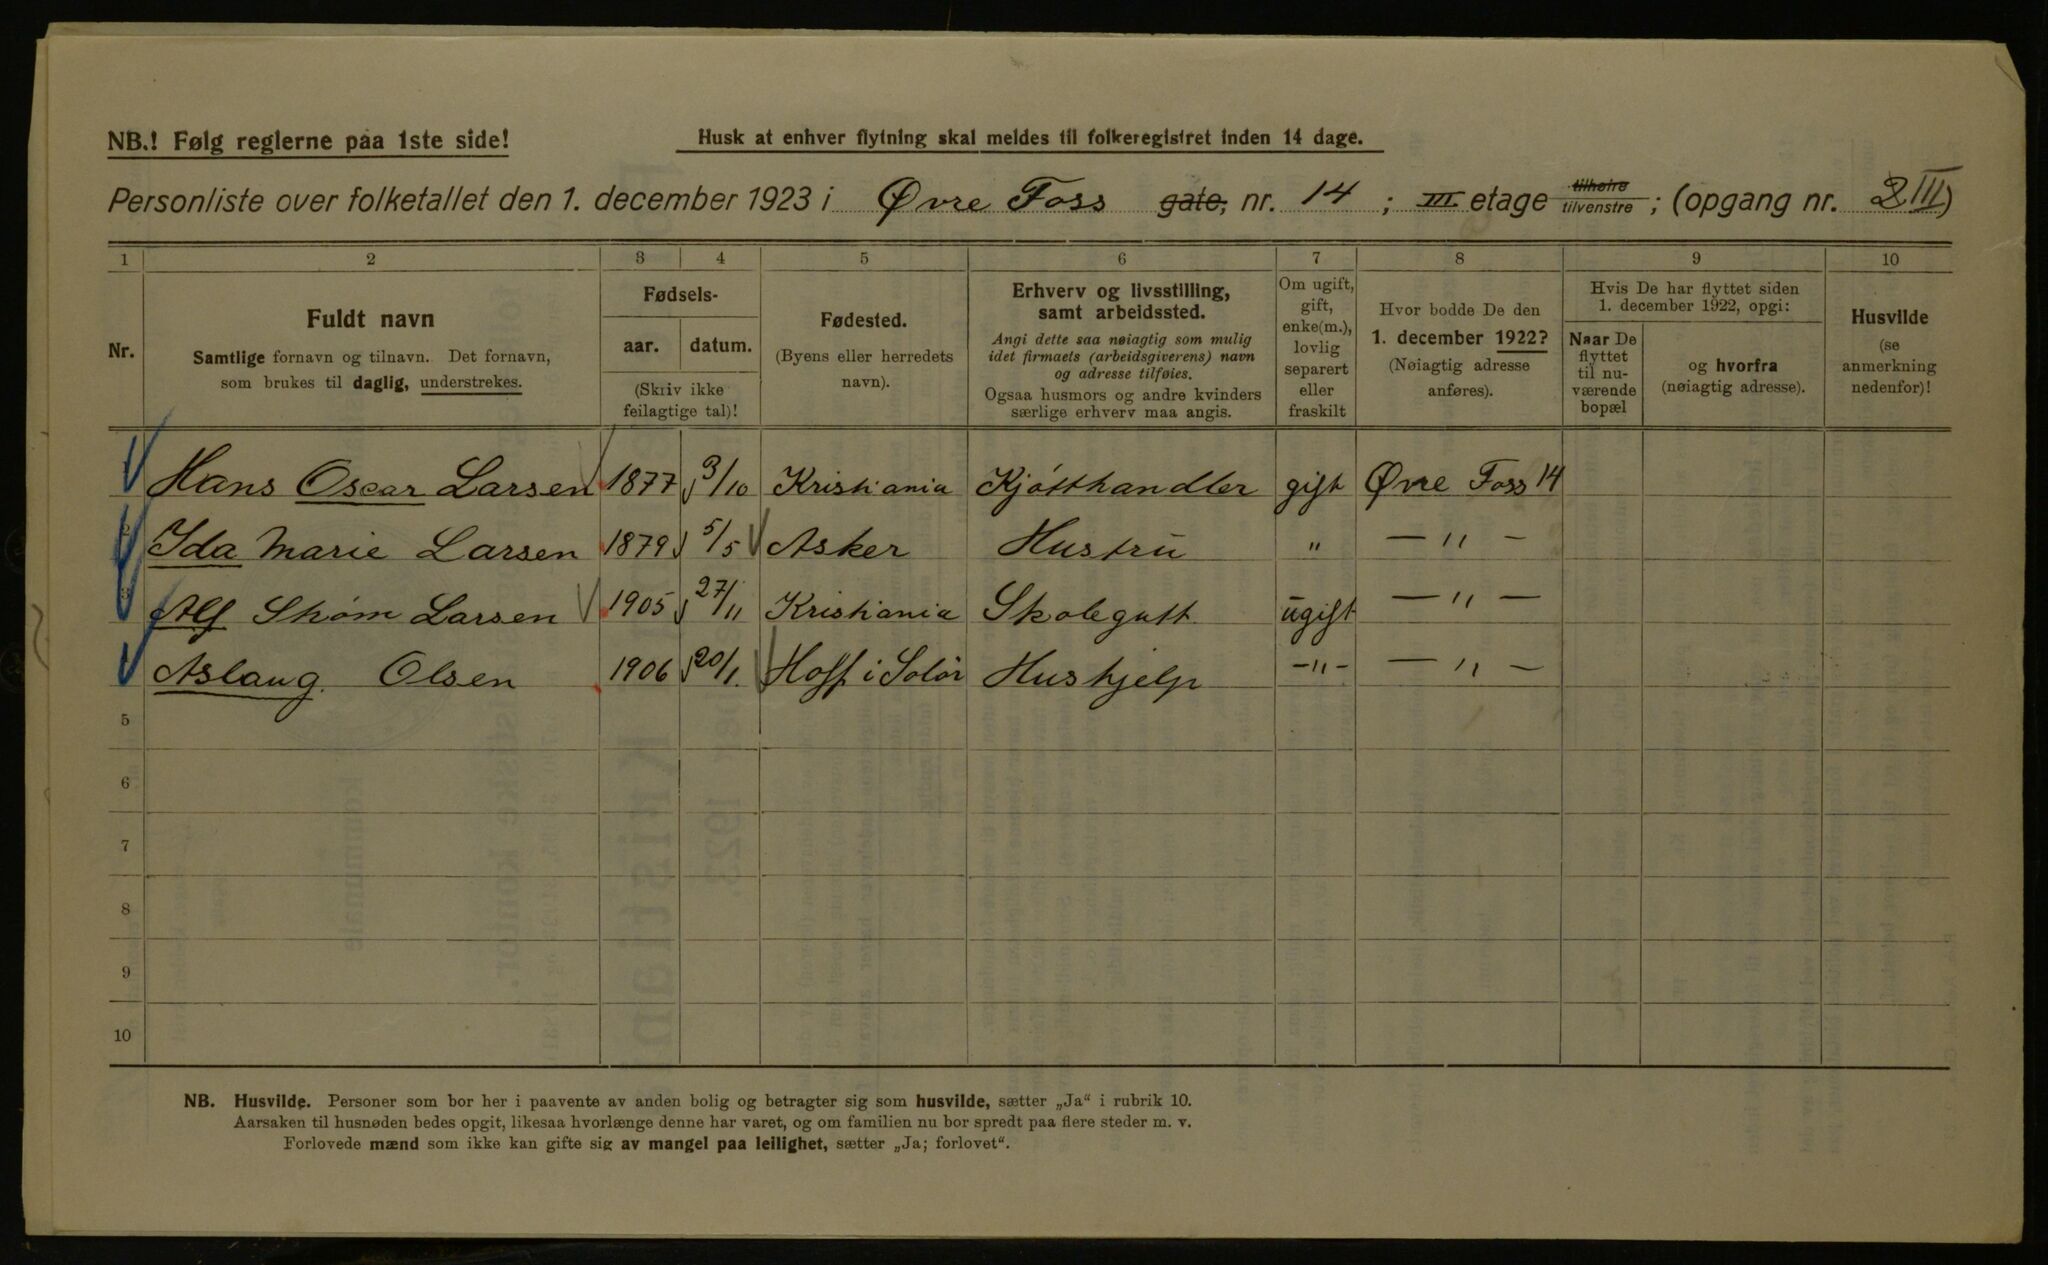 NB.! Følg reglerne paa 1ste side!
Husk at enhver flytning skal meldes til folkeregistret inden 14 dage.
Personliste over folketallet den 1. december 1923 i Øvre Foss gate, nr. 14 ; III etage tilhøire tilvenstre ; (opgang nr. 2 III)
1 2 3 4 5 6 7 8 9 10
Nr.
Fuldt navn
Samtlige fornavn og tilnavn. Det fornavn,
som brukes til daglig, understrekes.
Fødsels-
aar. datum.
(Skriv ikke
feilagtige tal)!
Fødested.
(Byens eller herredets
navn).
Erhverv og livsstilling,
samt arbeidssted.
Angi dette saa nøiagtig som mulig
idet firmaets (arbeidsgiverens) navn
og adresse tilføies.
Ogsaa husmors og andre kvinders
særlige erhverv maa angis.
Om ugift,
gift,
enke(m.),
lovlig
separert
eller
fraskilt
Hvor bodde De den
1. december 1922?
(Nøiagtig adresse
anføres).
Hvis De har flyttet siden
1. december 1922, opgi:
Naar De
flyttet
til nu-
værende
bopæl
og hvorfra
(nøiagtig adresse).
Husvilde
(se
anmerkning
nedenfor)!
1 Hans Oscar Larsen 1877 3/10 Kristiania Kjøtthandler gift Øvre Foss 14
2 Ida Marie Larsen 1879 5/5 Asker Hustru " — " —
3 Alf Larsen 1905 27/11 Kristiania Skolegutt ugift — " —
Aslaug Olsen 1906 20/1. Hoff i Solør Hushjelp — " — — " —
5
6
7
8
9
10
NB. Husvilde. Personer som bor her i paavente av anden bolig og betragter sig som husvilde, sætter „Ja“ i rubrik 10.
Aarsaken til husnøden bedes opgit, likesaa hvorlænge denne har varet, og om familien nu bor spredt paa flere steder m. v.
Forlovede mænd som ikke kan gifte sig av mangel paa leilighet, sætter „Ja; forlovet“.